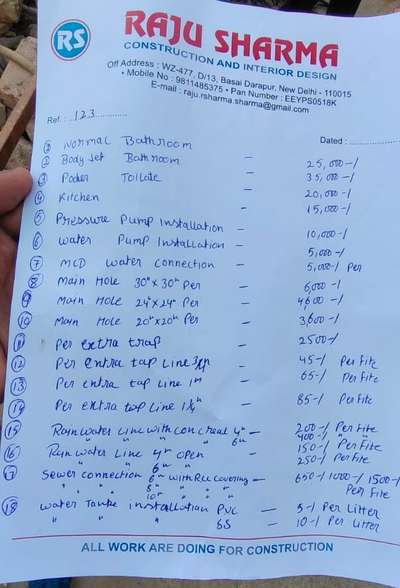 RS
RAJU SHARMA
CONSTRUCTION AND INTERIOR DESIGN
Off Address : WZ-477, D/13, Basai Darapur, New Delhi - 110015
• Mobile No : 9811485375 • Pan Number : EEYPS0518K
E-mail : raju.rsharma.sharma@gmail.com
Ref. : 123
Dated :
① Normal Bathroom — 25,000-/
② Body Jet Bathroom — 35,000-/
③ Poder Toilate — 20,000-/
④ Kitchen — 15,000-/
⑤ Pressure Pump Installation — 10,000-/
⑥ Water Pump Installation — 5,000-/
⑦ MCD Water Connection — 5,000-/ Per
⑧ Main Hole 30"x30" Per — 6,000-/
⑨ Main Hole 24"x24" Per — 4,600-/
⑩ Main Hole 20"x20" Per — 3,600-/
⑪ Per extra trap — 2500-/
⑫ Per extra tap Line — 45-/ Per Fite
⑬ Per extra tap Line 1" — 65-/ Per Fite
⑭ Per extra tap Line — 85-/ Per Fite
⑮ Rain water Line with Conceal 4" — 200-/ Per Fite
" " " " 6" — 400-/ " Per Fite
⑯ Rain Water Line 4" open — 150-/ Per Fite
" " " 6" — 250-/ Per Fite
⑰ Sewer connection 6" with Rcc covering — 650-/ 1000-/ 1500-/
" " 8" " " Per Fite
" " 10" " "
⑱ Water Tanke installation PVC — 5-/ Per Litter
" " " SS — 10-/ Per Litter
ALL WORK ARE DOING FOR CONSTRUCTION